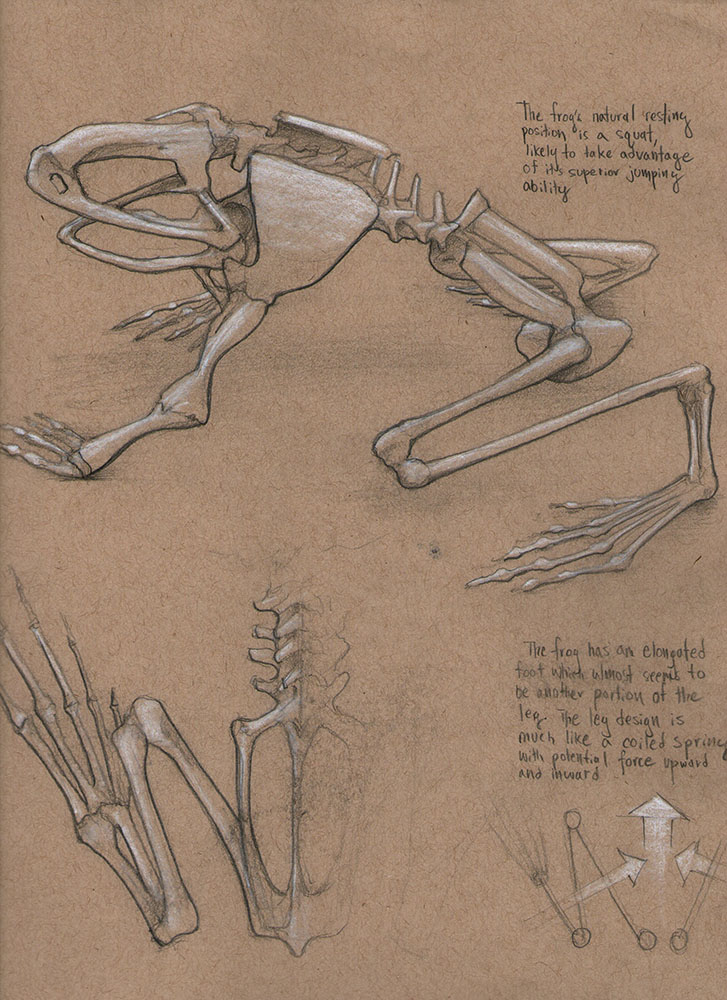 The frog's natural resting
position is a squat,
likely to take advantage
of it's superior jumping
ability
The frog has an elongated
foot which almost seems to
be another portion of the
leg. The leg design is
much like a coiled spring
with potential force upward
and inward